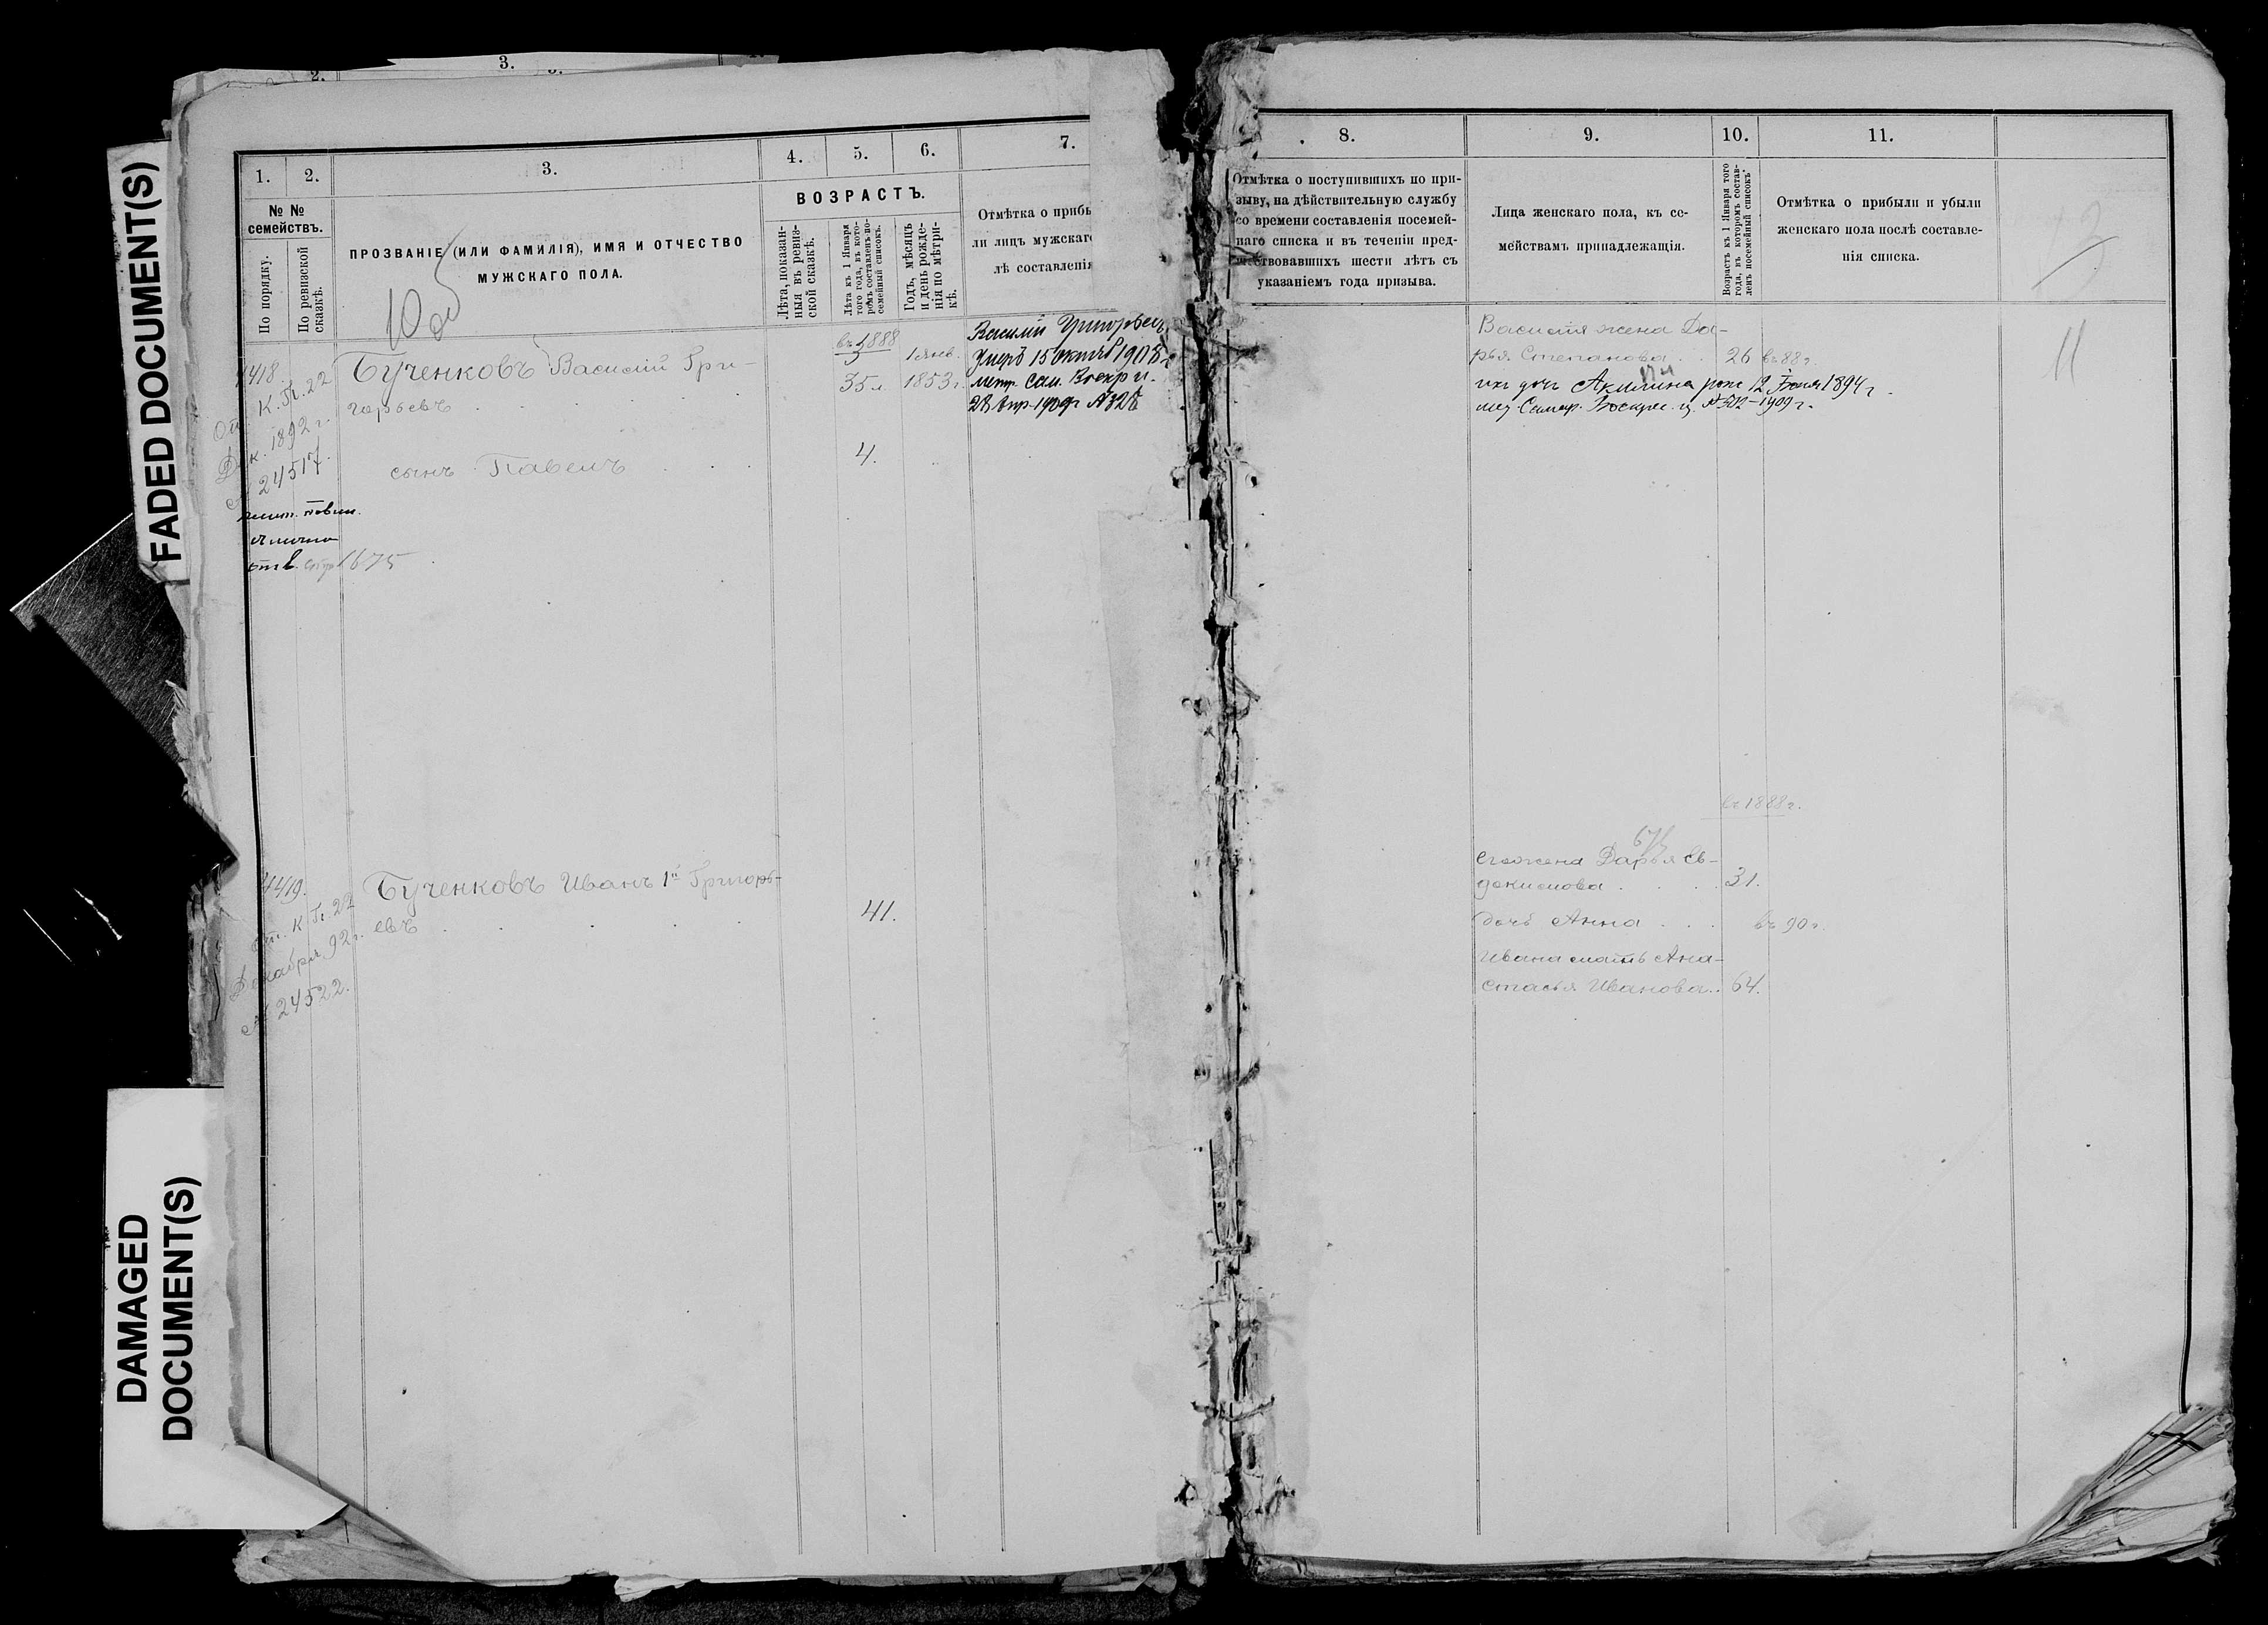 FADED DOCUMENT(S)
DAMAGED
DOCUMENT(S)
3.
2.
1. 2. 3. 4. 5. 6. 7.
№ №
семействъ.
По порядку.
По ревизской
сказкѣ.
ПРОЗВАНІЕ (ИЛИ ФАМИЛІЯ), ИМЯ И ОТЧЕСТВО
МУЖСКАГО ПОЛА.
ВОЗРАСТЪ.
Лѣта, показан-
ныя въ ревиз-
ской сказкѣ.
Лѣта къ 1 Января
того года, въ кото-
ромъ составленъ по-
семейный списокъ.
Годъ, мѣсяцъ
и день рожде-
нія по метри-
кѣ.
Отмѣтка о прибы
ли лицъ мужскаго
лѣ составленія
418.
К. П. 22
Дек. 1892 г.
24517.
Бученковъ Василій Гри-
горьевъ
въ 1888
35 л.
1 янв.
1853 г.
Василій Григорьев
умеръ 15 октяб 1908 г
метр. Сам. Воскр ц.
28 апр. 1909 г № 328
сынъ Павелъ
4.
отв. стр 1675
4419.
От. К. П. 22
Декабря 92 г.
№ 24522.
Бученковъ Иванъ 1й Григорь-
евъ
41.
8. 9. 10. 11.
Отмѣтка о поступившихъ по при-
зыву, на дѣйствительную службу
со времени составленія посемей-
наго списка и въ теченіи пред-
шествовавшихъ шести лѣтъ съ
указаніемъ года призыва.
Лица женскаго пола, къ се-
мействамъ принадлежащія.
Возрастъ къ 1 Января того
года, въ которомъ состав-
ленъ посемейный списокъ.
Отмѣтка о прибыли и убыли
женскаго пола послѣ составле-
нія списка.
13
11
Василія жена Да-
рья Степанова 26 въ 88 г.
их дочь Акилина рож 12 Іюня 1894 г.
мет. Самар. Воскрес. ц. 1909 г.
въ 1888 г.
его жена Дарья Ев-
докимова 31.
дочь Анна въ 90 г.
Ивана мать Ана-
стасья Иванова 64.